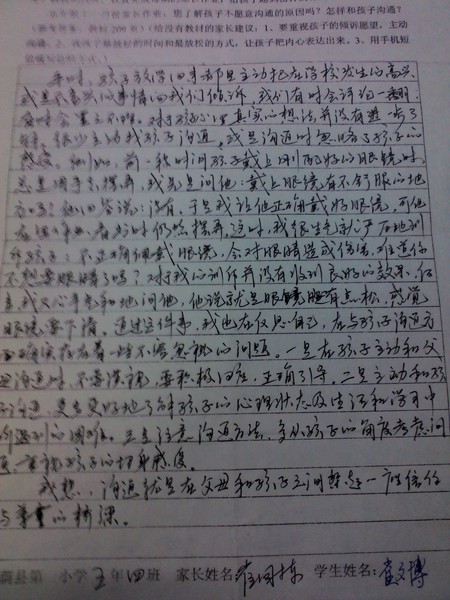 您了解孩子不愿意沟通的原因吗?怎样和孩子沟通?
200字)(给没有教材的家长建议:1、要重视孩子的倾诉愿望,主动
沟通。2、找准了解教材的时间和最放松的方式,让孩子把内心表达出来。3、用手机短
平时,孩子放学回来都是主动把在学校发生的高兴
或是不高兴的事情向我们倾诉,我们有时会评论一翻,
有时会置之不理。对于孩子心里真实的想法并没有进一步了
解。很少主动找孩子沟通,或是沟通时忽略了孩子的
感受。例如:前一段时间孩子戴上刚配好的眼镜时,
总是用手去摸弄,我先是问他:戴上眼镜有不舒服的地
方吗?他回答说:没有,于是我让他正确戴好眼镜,可他
在看书时仍然摸弄,这时,我很生气
孩子:不正确佩戴眼镜,会对眼睛造成伤害,难道你
不想要眼睛了吗?对于我的训斥并没有收到良好的效果,
我又心平气和地问他,他说就是眼镜腿有点松,感觉
眼镜要下滑。通过这件事,我也在反思自己,在与孩子沟通方
面确实存在着一些不容忽视的问题。一是在孩子主动和父
母沟通时,不要漠视,要积极回应,正确引导。二是主动和孩
子沟通,更多更好地了解孩子的心理状态及生活和学习中
所遇到的困难。三是注意沟通方法,多从孩子的角度考虑问
题,重视孩子的切身感受。
我想,沟通就是在父母和孩子之间架起一座信任
与 的桥梁。
蔚县第 小学五年四班 家长姓名:崔国栋 学生姓名:崔文博